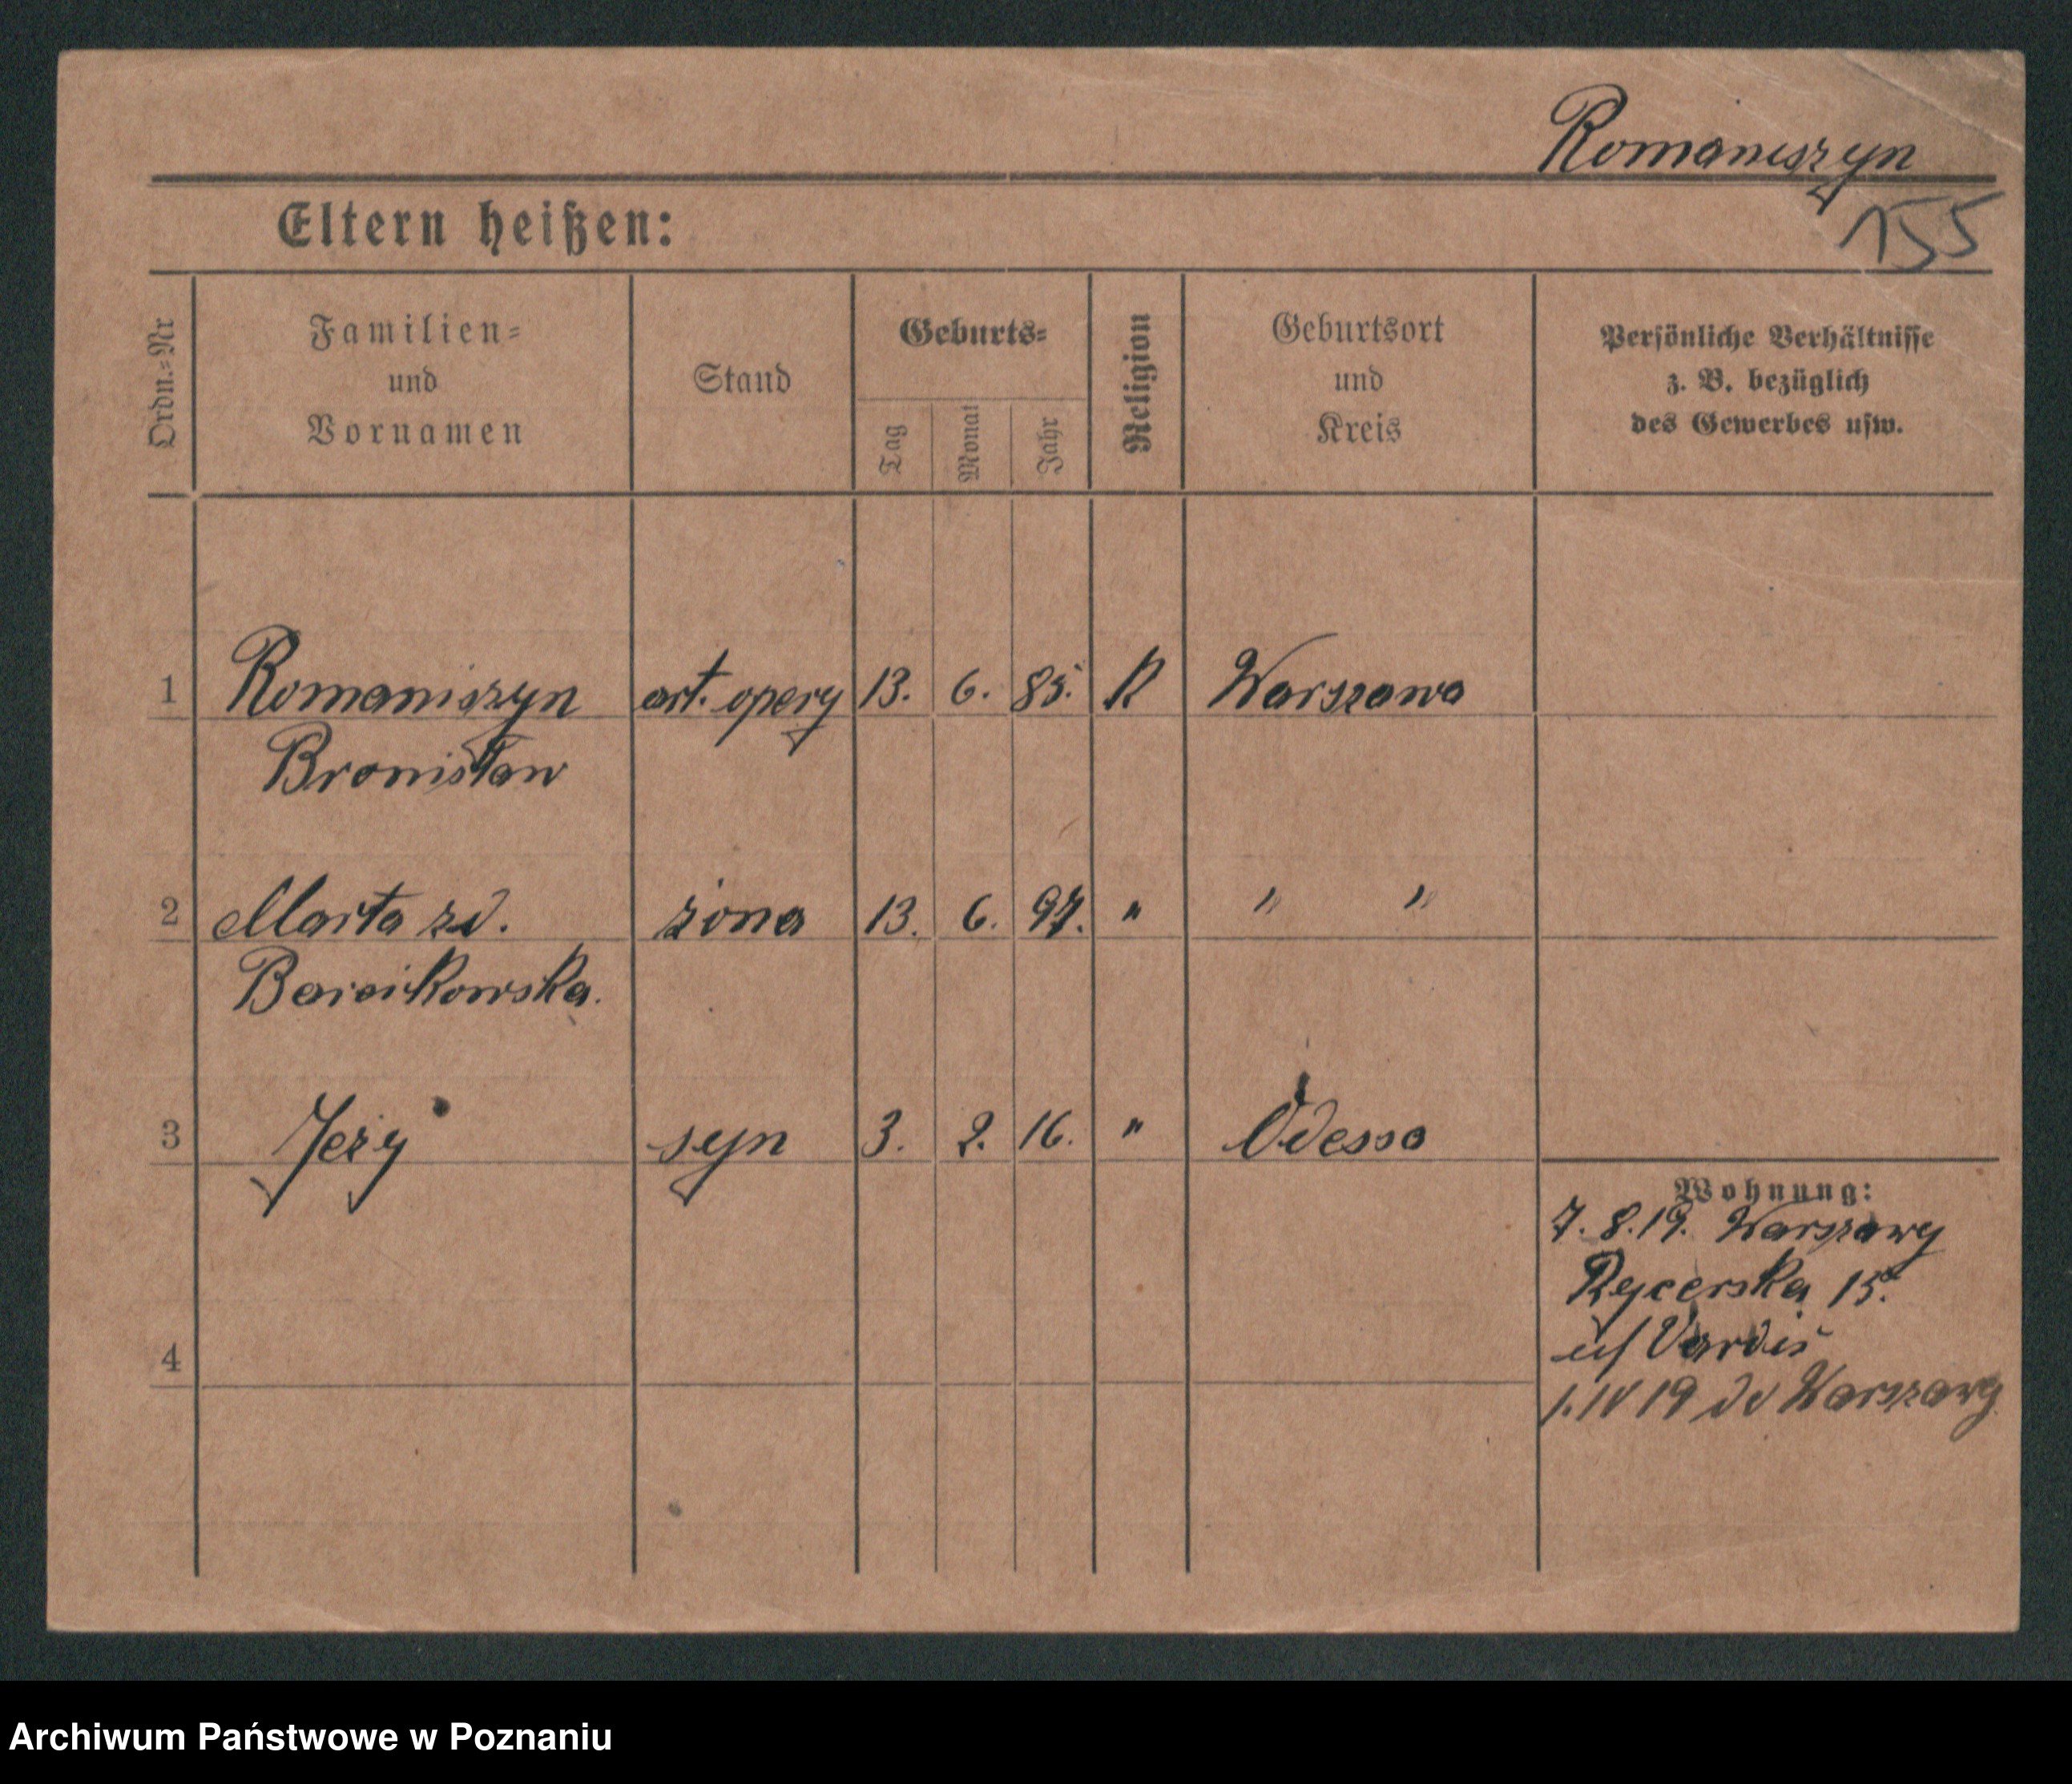 Romaniszyn
155
Eltern heißen:
Ordn.-Nr
Familien-
und
Vornamen
Stand
Geburts-
Tag
Monat
Jahr
Religion
Geburtsort
und
Kreis
Persönliche Verhältnisse
z. B. bezüglich
des Gewerbes usw.
1 Romaniszyn art. opery 13. 6. 85. R Warszawa
Bronisław
2 Marta zd. żona 13. 6. 97. " " "
Barcikowska.
3 Jeży syn 3. 2. 16. " Odessa
Wohnung:
7. 8. 19. Warszawy
Rycerska 15.
u/
4
1. IV 19 do Warszawy
Archiwum Państwowe w Poznaniu